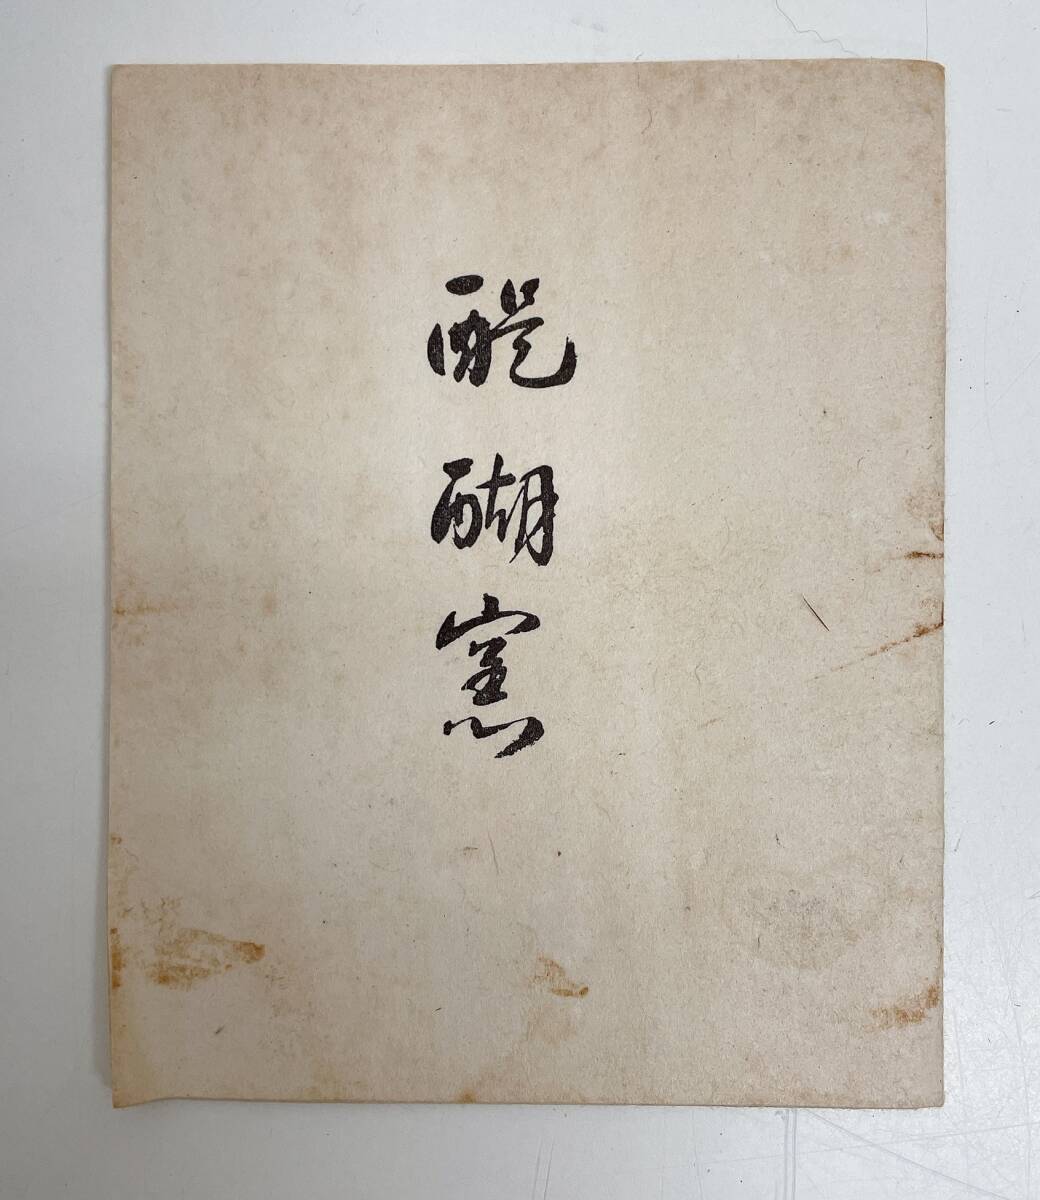 醍醐窯